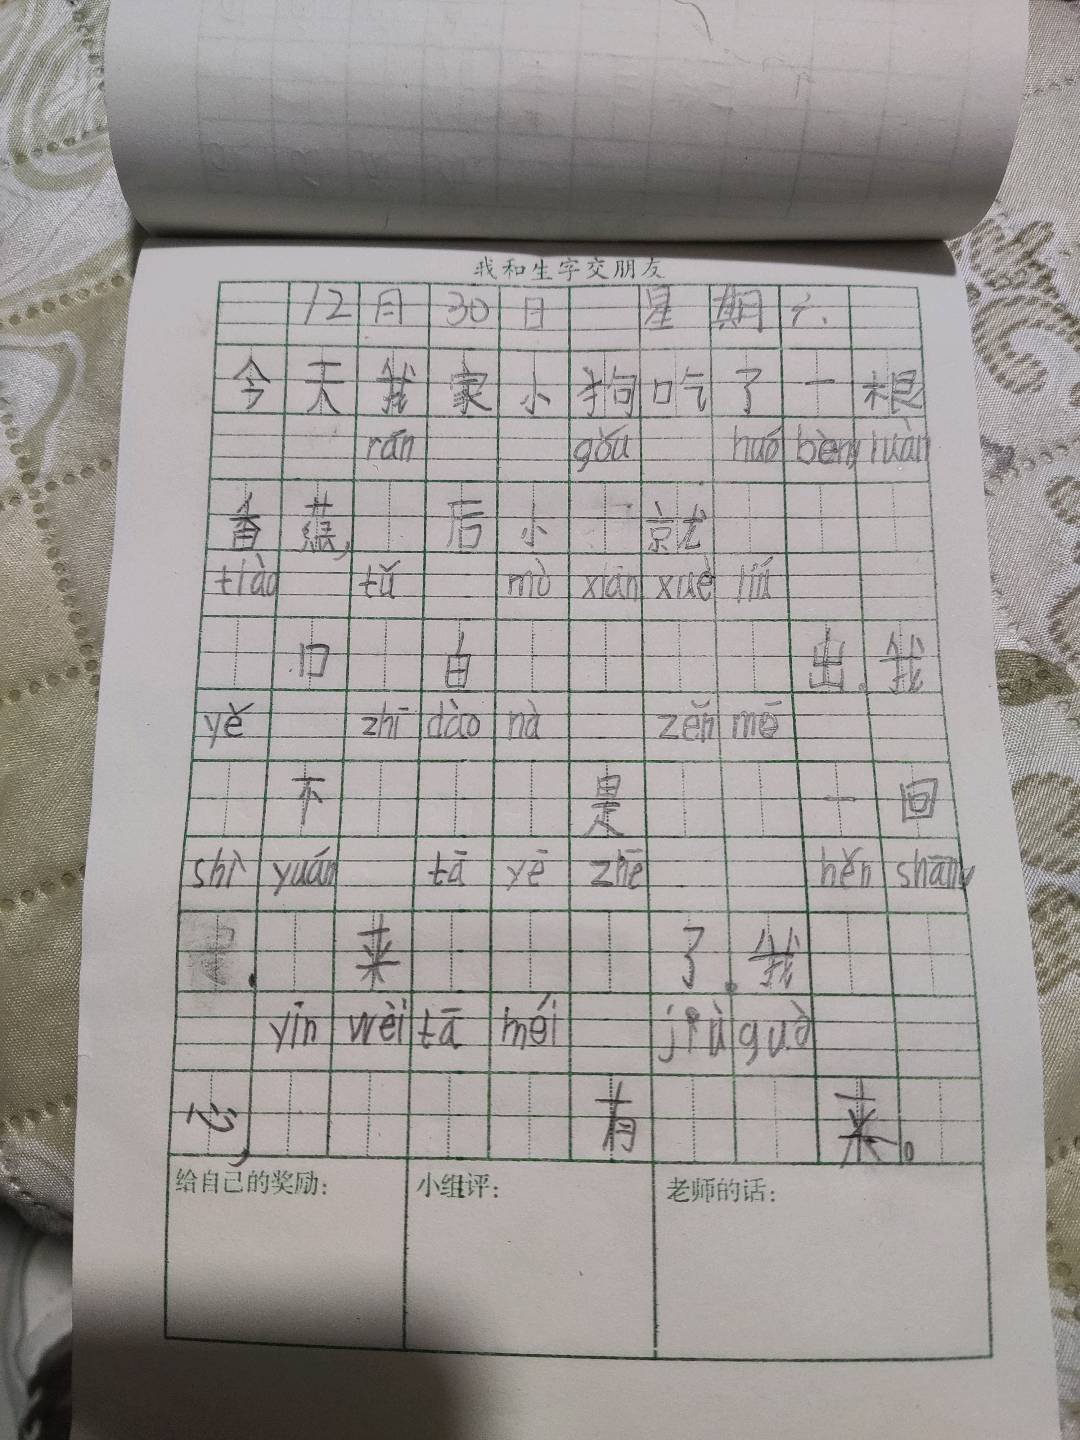 我和生字交朋友
12月30日 星期六
今天我家小狗吃了一根
rán gǒu huó bèng luàn
香蕉, 后小 就
tiào tǔ mò xiān xuè liú
口 白 出。我
yě zhī dào nà zěn mē
不 是 一回
shì yuán tā yē zhē hěn shāng
来 了。我
yīn wèi tā méi jiù guò
心, 有 来。
给自己的奖励:
小组评:
老师的话: